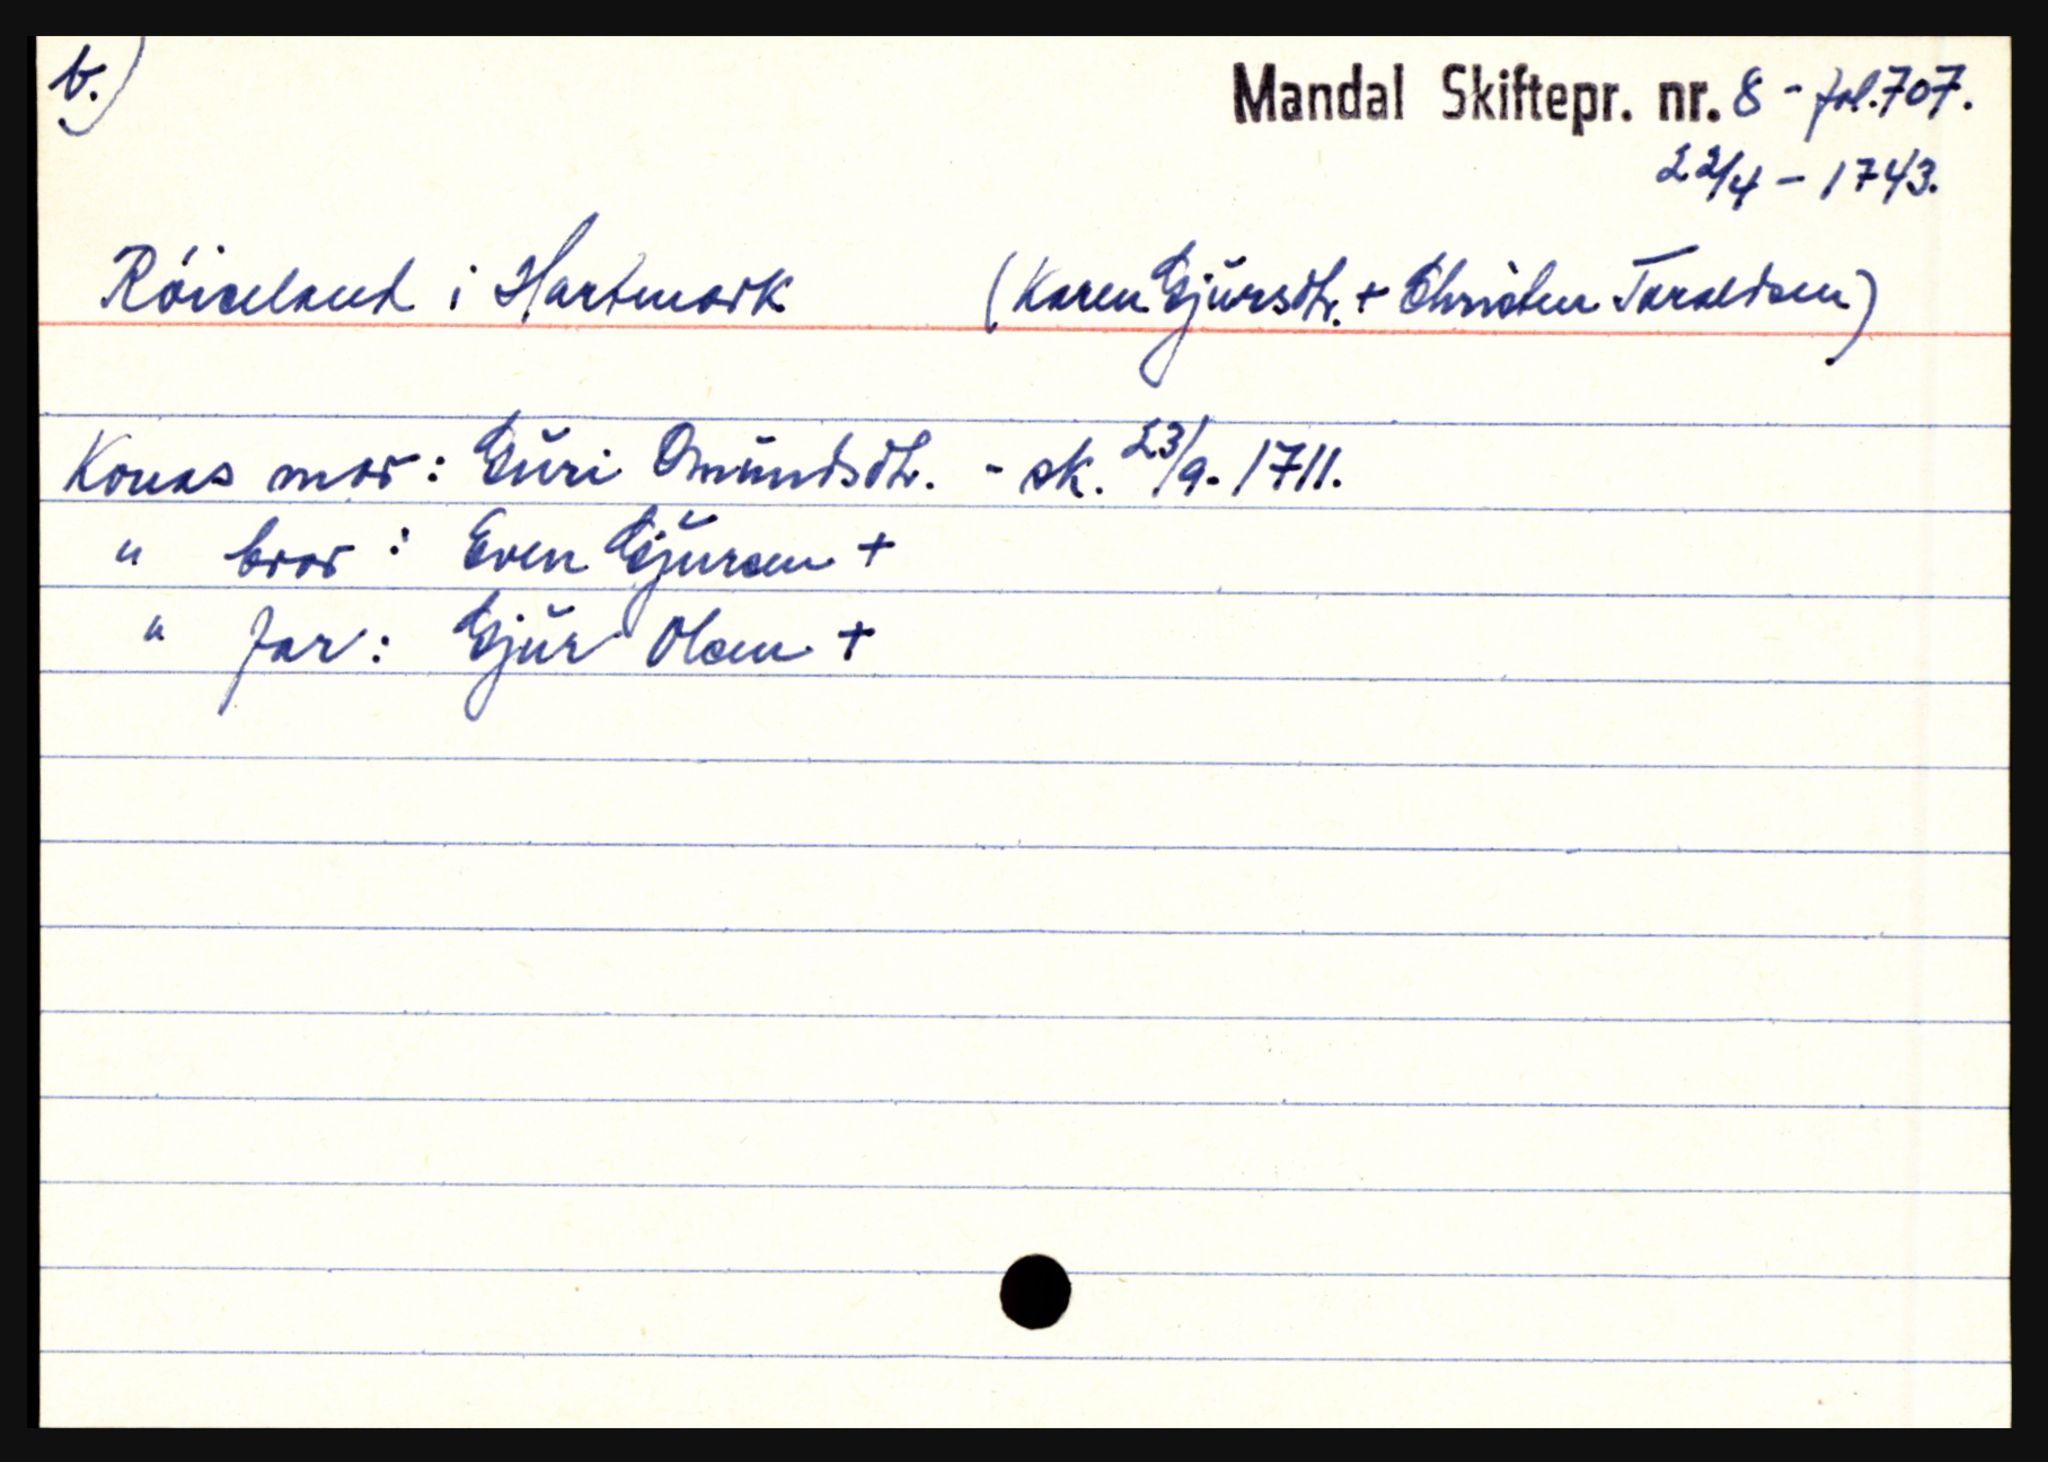 b.)
Mandal Skiftepr. nr. 8 - fol. 707.
22/4 - 1743.
Röiseland i Hartmark (Karen Gjŭrsdtr. + Christen Taraldsen)
Konas mor: Gŭri Omŭndsdtr. - sk. 23/9. 1711.
" bror: Even Gjŭrsen +
" far: Gjŭr Olsen +